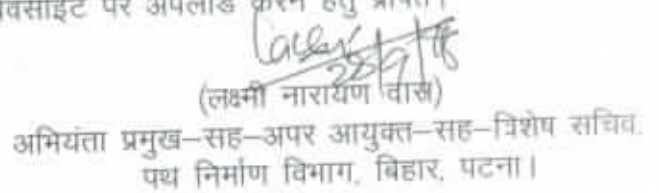 वेबसाईट पर अपलोड करने हेतु प्रेषित।
28/9/18
(लक्ष्मी नारायण दास)
अभियंता प्रमुख–सह–अपर आयुक्त–सह–विशेष सचिव,
पथ निर्माण विभाग, बिहार, पटना।